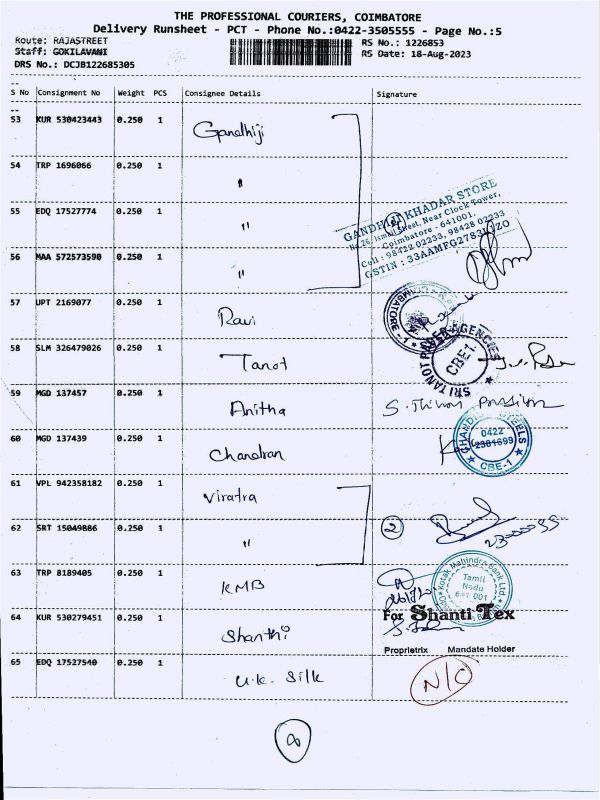 THE PROFESSIONAL COURIERS, COIMBATORE
Delivery Runsheet - PCT - Phone No.:0422-3505555 - Page No.:5
Route: RAJASTREET RS No.: 1226853
Staff: GOKILAVANI RS Date: 18-Aug-2023
DRS No.: DCJB122685305
S No Consignment No Weight PCS Consignee Details Signature
53 KUR 530423443 0.250 1 Gandhiji
54 TRP 1696066 0.250 1 "
55 EDQ 17527774 0.250 1 "
GANDHIJI KHADAR STORE
No.26, Ismail Street, Near Clock Tower,
Coimbatore - 641001.
Cell : 98422 02233, 98428 02233
GSTIN : 33AAMFG2783L1ZO
56 MAA 572573590 0.250 1 "
57 UPT 2169077 0.250 1 Ravi
58 SLM 326479026 0.250 1 Tanot
SRI TANOT PAPER AGENCIES
CBE1
59 MGD 137457 0.250 1 Anitha
60 MGD 137439 0.250 1 Chandran
0422
2381699
CBE-1
61 VPL 942358182 0.250 1 Viratra
62 SRT 15049886 0.250 1 " 2
63 TRP 8189405 0.250 1 KMB
Kotak Mahindra Bank Ltd.
Tamil
Nadu
641 001
64 KUR 530279451 0.250 1 Shanthi
For Shanti Tex
Proprietrix Mandate Holder
65 EDQ 17527540 0.250 1 U.K. Silk N/C
8